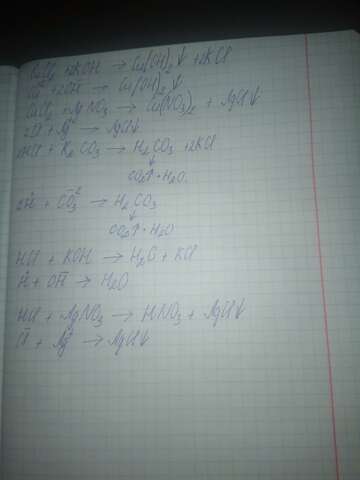 CuCl₂ + 2KOH → Cu(OH)₂↓ + 2KCl
Cu²⁺ + 2OH⁻ → Cu(OH)₂↓
CuCl₂ + AgNO₃ → Cu(NO₃)₂ + AgCl↓
2Cl⁻ + Ag⁺ → AgCl↓
2HCl + K₂CO₃ → H₂CO₃ + 2KCl
↓
CO₂↑ · H₂O
2H⁺ + CO₃²⁻ → H₂CO₃
↓
CO₂↑ · H₂O
HCl + KOH → H₂O + KCl
H⁺ + OH⁻ → H₂O
HCl + AgNO₃ → HNO₃ + AgCl↓
Cl⁻ + Ag⁺ → AgCl↓